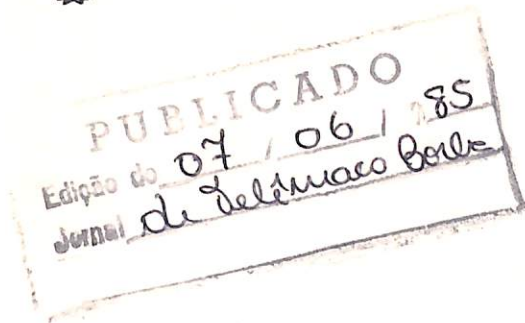 PUBLICADO
Edição do 07 / 06 / 85
Jornal de Telêmaco Borba